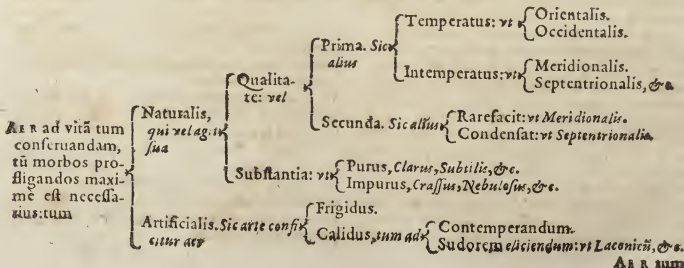 AER ad vitã tum
conseruandam,
tũ morbos pro-
fligandos maxi-
mè est necessa-
rius: tum
Naturalis,
qui vel agit
sua
Qualita-
te: vel
Prima. Sic
alius
Temperatus: vt
Orientalis.
Occidentalis.
Intemperatus: vt
Meridionalis.
Septentrionalis, &c.
Secunda. Sic alius
Rarefacit: vt Meridionalis.
Condensat: vt Septentrionalis.
Substantia: vt
Purus, Clarus, Subtilis, &c.
Impurus, Crassus, Nebulosus, &c.
Artificialis. Sic arte confi-
citur aer
Frigidus.
Calidus, tum ad
Contemperandum.
Sudorem eliciendum: vt Laconicũ, &c.
AER tum